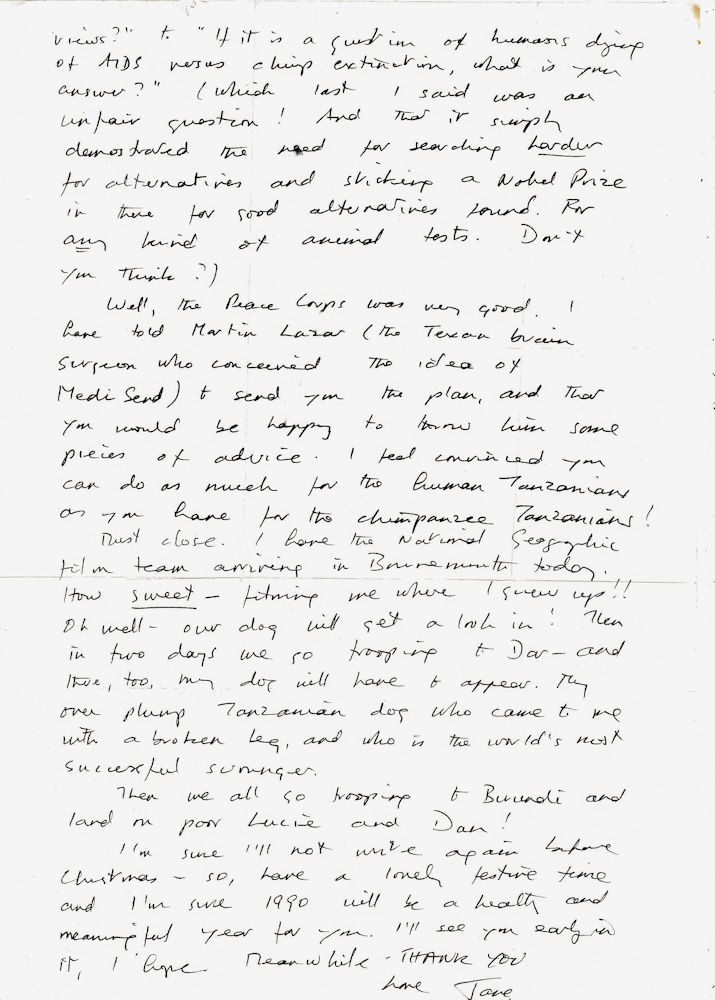 views?" to "If it is a question of humans dying
of AIDS versus chimp extinction, what is your
answer?" (which last I said was an
unfair question! And that it simply
demostrated the need for searching harder
for alternatives and sticking a Nobel Prize
in there for good alternatives found. For
any kind of animal tests. Don't
you think?)
Well, the Peace Corps was very good. I
have told Martin Lazar (the Texan brain
surgeon who conceived the idea of
Medi Send) to send you the plan, and that
you would be happy to throw him some
pieces of advice. I feel convinced you
can do as much for the human Tanzanians
as you have for the chimpanzee Tanzanians!
Must close. I have the National Geographic
film team arriving in Bournemouth today.
How sweet - filming me where I grew up!!
Oh well - our dog will get a look in! Then
in two days we go trooping to Dar - and
there, too, my dog will have to appear. My
over plump Tanzanian dog who came to me
with a broken leg, and who is the world's most
successful scrounger.
Then we all go trooping to Burundi and
land on poor Lucie and Dan!
I'm sure I'll not write again before
Christmas - so, have a lovely festive time
and I'm sure 1990 will be a health and
meaningful year for you. I'll see you early in
it, I hope. Meanwhile - THANK YOU
love Jane